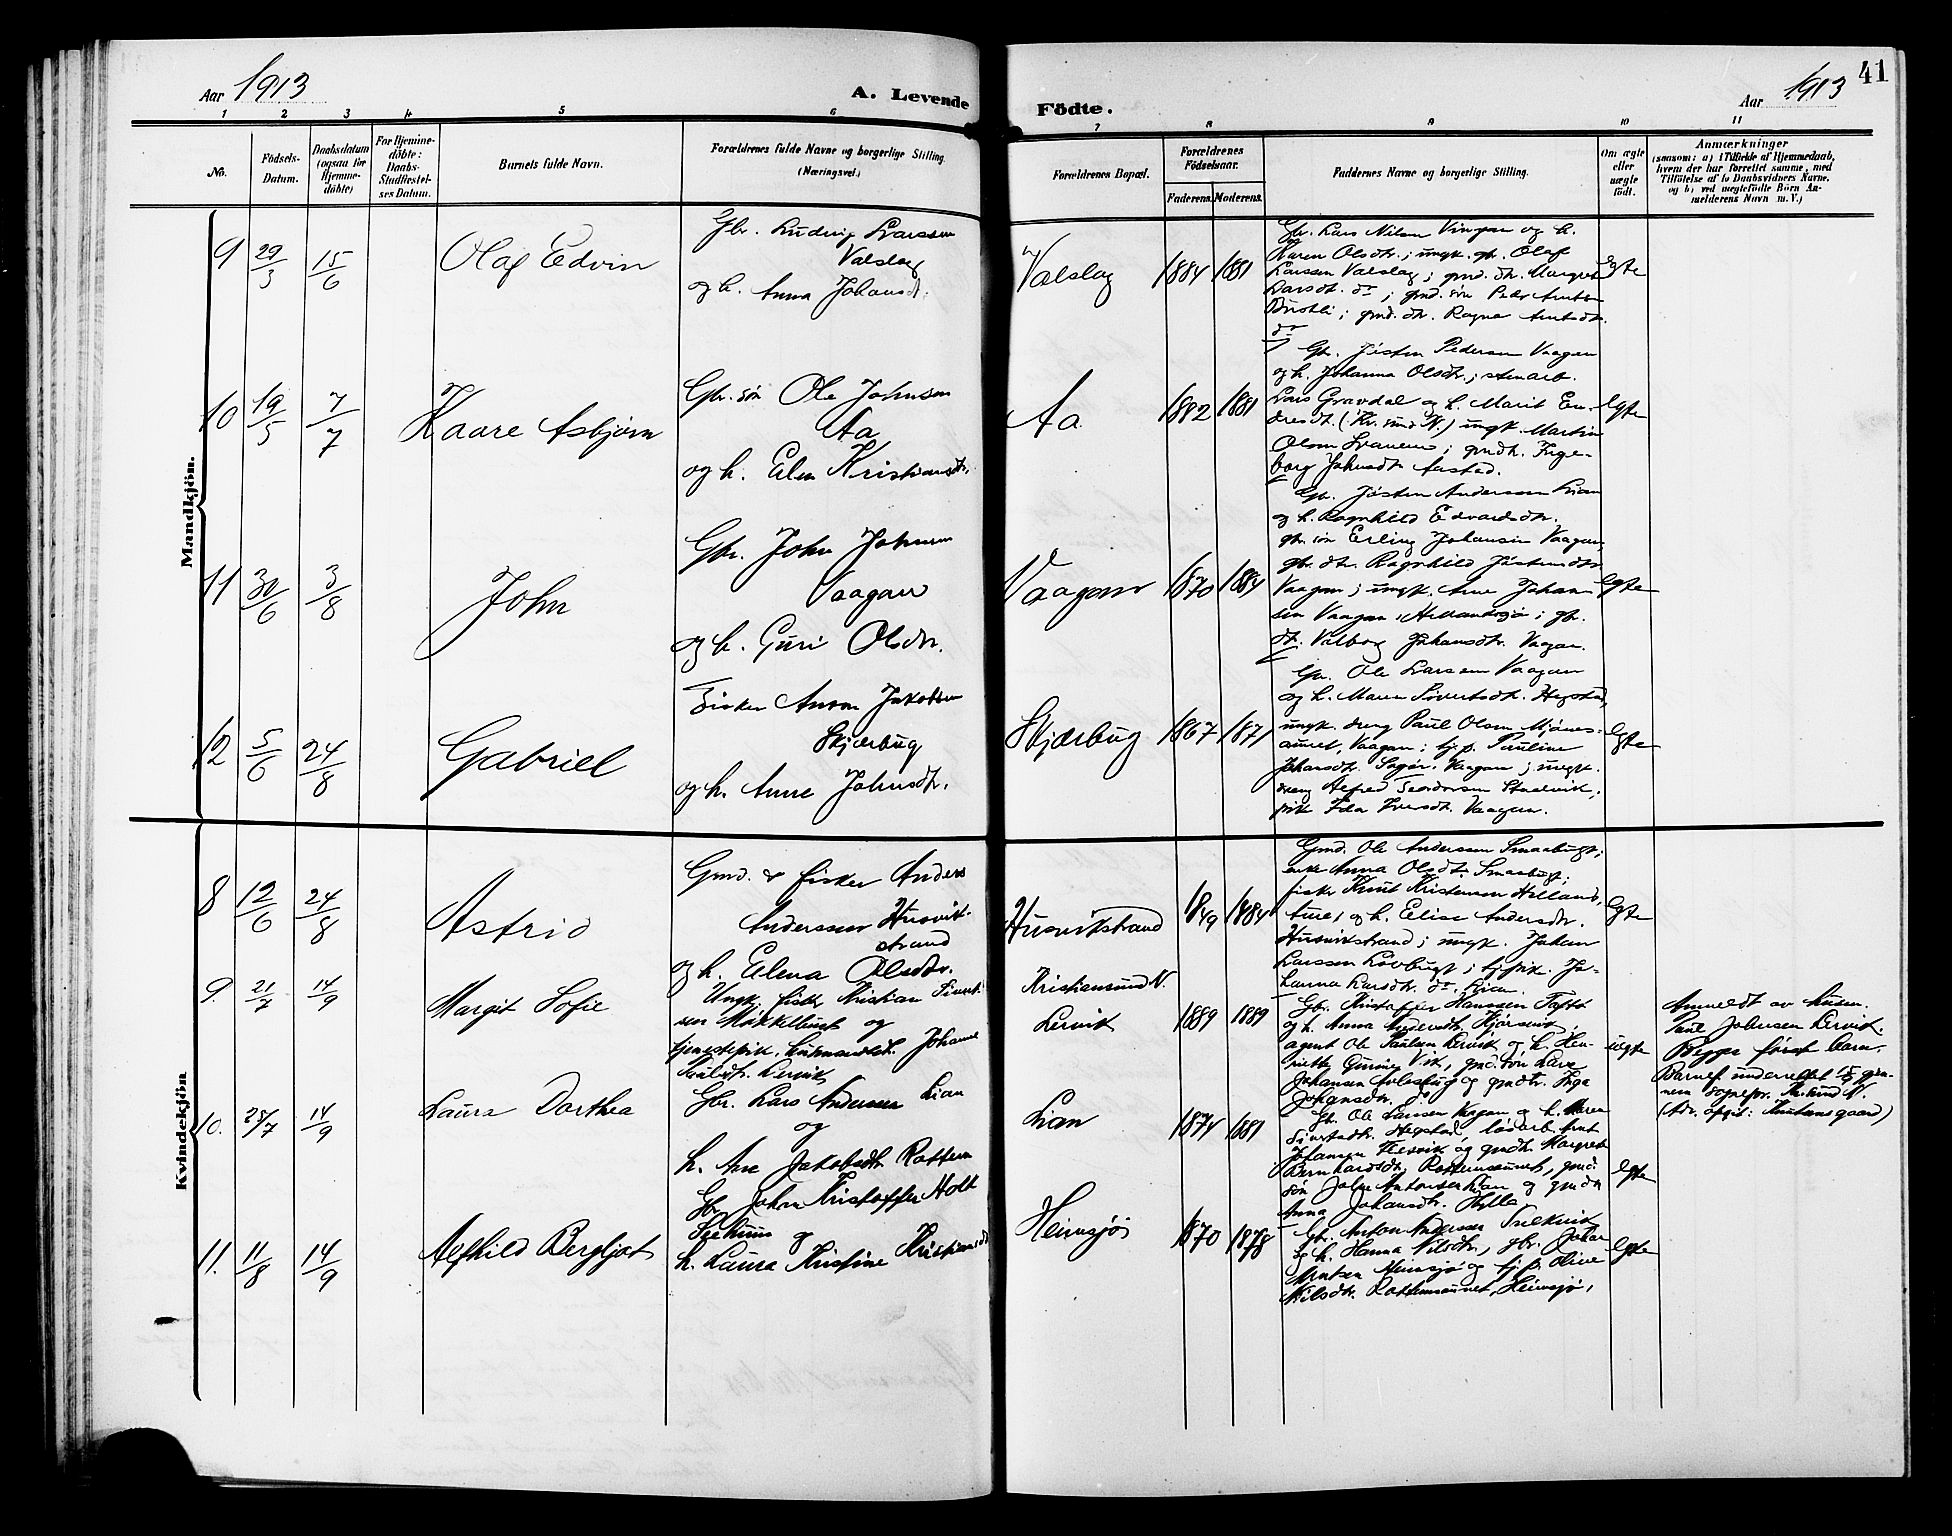 Aar 1913
A. Levende
Födte.
Aar 1913
41
1 2 3 4 5 6 7 8 9 10 11
No.
Födsels-
Datum.
Daabsdatum
(ogsaa for
Hjemme-
döbte)
For Hjemme-
döbte:
Daabs-
Stadfæstel-
ses Datum.
Barnets fulde Navn.
Forældrenes fulde Navne og borgerlige Stilling.
(Næringsvei.)
Forældrenes Bopæl.
Forældrenes
Födselsaar.
Faderens. Moderens.
Faddernes Navne og borgerlige Stilling.
Om ægte
eller
uægte
födt.
Anmærkninger
(saasom: a) i Tilfælde af Hjemmedaab,
hvem der har forrettet samme, med
Tilföielse af to Daabsvidners Navne,
og b) ved uægtefödte Börn An-
melderens Navn m. V.)
Mandkjön.
9 29/3 15/6 Olaf Edvin
Gbr. Ludvig Larssen
Valslag
og h. Anna Johansdt.
Valslag 1884 1881
Gbr. Lars Nilsen Vingan og h.
Karen Olsdtr.; ungk. gb. Olaf
Larssen Valslag; gmd. dtr. Margret
Larsdt. do; gmd. søn Peder Arntsen
; gmd. dtr. Ragna Arntsdtr.
do
Egte
10 19/5 7/7 Kaare Asbjørn
Gbr. søn Ole Johnsen
Aa
og h. Elen Kristiansdtr.
Aa 1882 1881
Gbr. Jøsten Pedersen Vaagan
og h. Johanna Olsdtr.;
Lars Gravdal og h. Marit En-
dresdt. (Kr.sund N.) ungk. Martin
Olsen ; gmdtr. Inge-
borg Johnsdtr. Austad.
Egte
11 30/6 3/8 John
Gbr. John Johnsen
Vaagan
og h. Guri Olsdtr.
Vaagan 1870 1884
Gbr. Jøsten Andersen Lian
og h. Ragnhild Edvardsdtr.
gbr. søn Erling Johansen Vaagan,
gbr. dtr. Ragnhild Jøstensdtr.
Vaagan; ungk. Arne Johan-
sen Vaagan, ; gbr.
dt. Valborg Johansdtr. Vaagan.
Egte
12 5/6 24/8 Gabriel
Fisker Anton Jakobsen
Skjærbug
og h. Anne Johnsdtr.
Skjærbug 1867 1871
Gbr. Ole Larssen Vaagan
og h. Maren Sivertsdtr. Hegstad,
ungk. dreng Paul Olsen Mjønes-
aunet, Vaagan; tj.p. Pauline
Johansdtr. Vaagan; ungk.
dreng Alfred ;
pike Ida Iversdtr. Vaagan.
Egte
Kvindekjön
8 12/6 24/8 Astrid
Gmd. & fisker Anders
Anderssen Husvik-
strand
og h. Elena Olsdtr.
Husvikstrand 1849 1884
Gmd. Ole Anderssen Smaabugt;
enke Anna Olsdt. Smaabugt;
fisker Knut Kristensen Helland,
Aure, og h. Elise Andersdtr.
Husvikstrand; ungk. Johan
Larssen Lovbugt; tj.pik. Jo-
hanna Larsdtr. do. Lian.
Egte
9. 21/7 14/9 Margit Sofie
Ungk. fisker Kristian Sivert-
sen og
tjenestepik. husmandsdt. Johanne
Paulsdtr. Lervik
Kristiansund N.
Lervik 1889 1889
Gbr. Kristoffer Hanssen Toftt
og h. Anna Andersdtr. ,
agent Ole Paulsen Lervik og h. Hen-
riette Gurine Vik, gmd. søn Lars
Johansen og gmdtr. Inga
Johansdtr. do.
uegte
Anmeldt av husm.
Paul Johnsen Lervik.
Begges første barn.
Barnef. underrettet 15/9 gjen-
nem sognepr. Kr.sund N.
(Adr. opgit: Knutensgaard)
10. 25/7 14/9 Laura Dorthea
Gbr. Lars Andersen Lian
og
h. Ane Jakobsdtr. Rottem
Lian 1874 1881
Gb. Ole Larssen Vagan og h. Maren
Sivertsdtr. Hegstad, løsarb. Arnt
Johansen og gmdtr. Margrete
Bernhardsdtr. Rottemsaunet, gmd.
søn John Antonsen Lian og gmdtr.
Anna Johansdtr. Hylla
Egte
11. 11/8 14/9 Alfhild Bergljot
Gbr. Johan Kristoffer Holt
og
h. Laura Kristine Kristiansdt.
Heimsjø 1870 1878
Gbr. Anton Andersen
og h. Hanna Nilsdtr., gbr. Johan
Arntsen Heimsjø og tj.p. Oline
Nilsdtr. Rottemsaunet, Heimsjø,
Egte